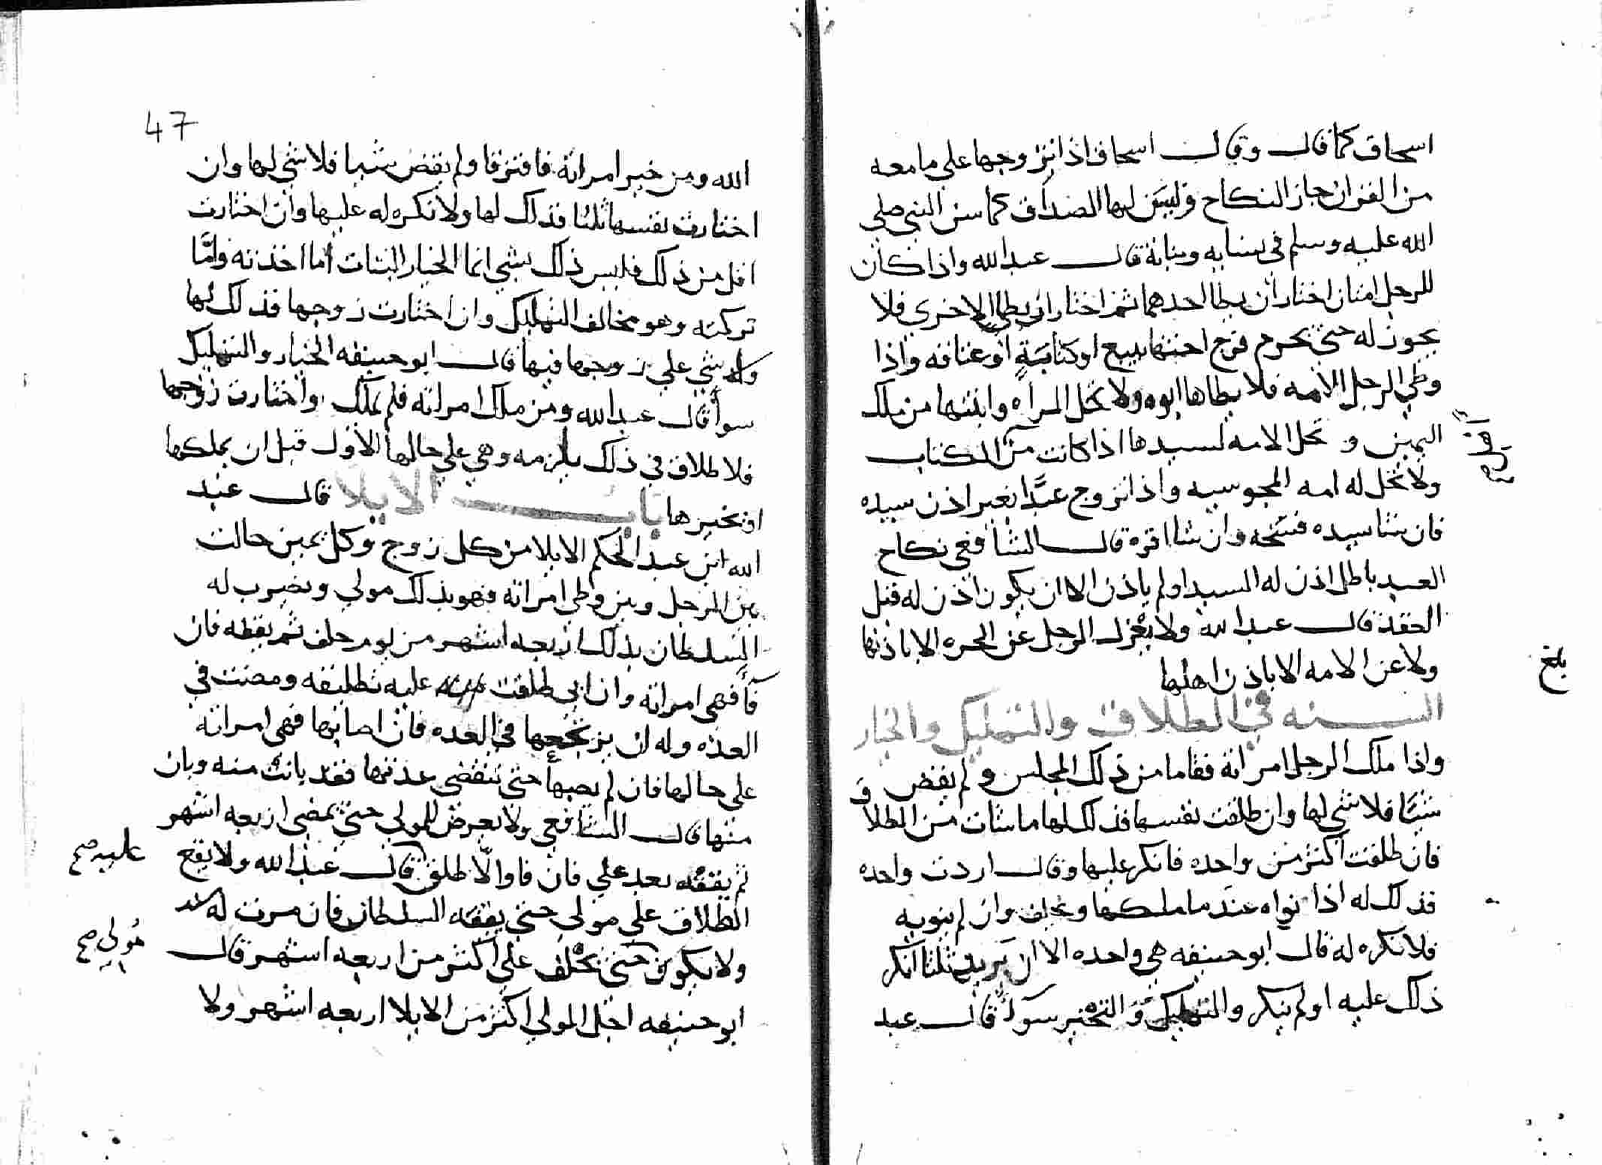 اسحاق كما قال وقال اسحاق اذا تزوجها على ما معه
من القران جاز النكاح وليس لها الصداق كما سن النبي صلى
الله عليه وسلم في نسايه وبناته قال عبد الله واذا كان
للرجل امتان اختان ان يطا احدهما ثم اختار ان يطا الاخرى فلا
يجوز له حتى يحرم فرج احتها ببيع او كتابة او عتاقه واذا
وطي الرجل الامه فلا يطاها ابوه ولا تحل المراه وابنتها من ملك
اليمين و تحل الامه لسيدها اذا كانت من اهل الكتاب
ولا تحل له امه المجوسيه واذا تزوج عبدا بغير اذن سيده
فان شا سيده فسخه وان شا اقره قال الشافعي نكاح
العبد باطل اذن له السيد او لم ياذن الا ان يكون اذن له قبل
العقد قال عبد الله ولا يعزل الرجل عن الحره الا باذنها
ولا عن الامه الا باذن اهلها
بلغ
السنه في الطلاق والتمليك والخيار
واذا ملك الرجل امراته فقاما من ذلك المجلس ولم يقض
شيا فلا شي لها وان طلقت نفسها فذلك لها ما شات من الطلا ق
فان طلقت اكثر من واحده فانكر عليها وقال اردت واحده
فذلك له اذا نواه عند ما ملكها ويحلف وان لم ينويه
فلا نكره له قال ابو حنيفه هي واحده الا ان يريد ثلثا انكر
ذلك عليه او لم ينكر والتمليك و التخيير سوا قال عبد
47
الله ومن خير امراته فافترقا ولم يقض شيا فلا شي لها وان
اختارت نفسها ثلثا فذلك لها ولا نكره له عليها وان اختارت
اقل من ذلك فليس ذلك بشي انما الخيار البتات اما اخذته واما
تركته وهو مخالف التمليك وان اختارت زوجها فذلك لها
ولا شي على زوجها فيها قال ابو حنيفه الخيار والتمليك
سوا قال عبد الله ومن ملك امراته فلم تملك واختارت زوجها
فلا طلاق في ذلك يلزمه وهي على حالها الاول قبل ان يملكها
او يخيرها باب الايلا قال عبد
الله ابن عبد الحكم الايلا من كل زوج وكل يمين حالت
بين الرجل وبين وطي امراته فهو بذلك مولي ويضرب له
السلطان بذلك اربعه اشهر من يوم حلف ثم يقفه فان
فا فهي امراته وان ابى طلقت عليه تطليقه ومضت في
العده وله ان يرتجعها في العده فان اصابها فهي امراته
على حالها فان لم يصبها حتى تنقضي عدتها فقد بانت منه وبان
منها قال الشافعي ولا يعرض للمولي حتى تمضي اربعه اشهر
ثم يقفه بعد علي فان فا والا طلق قال عبد الله ولا يقع
عليه صح
الطلاق على مولي حتى يقفه السلطان فان مرت له
ولا يكون حتى يحلف على اكثر من اربعه اشهر قال
مولي صح
ابو حنيفه اجل المولي اكثر من الايلا اربعه اشهر ولا